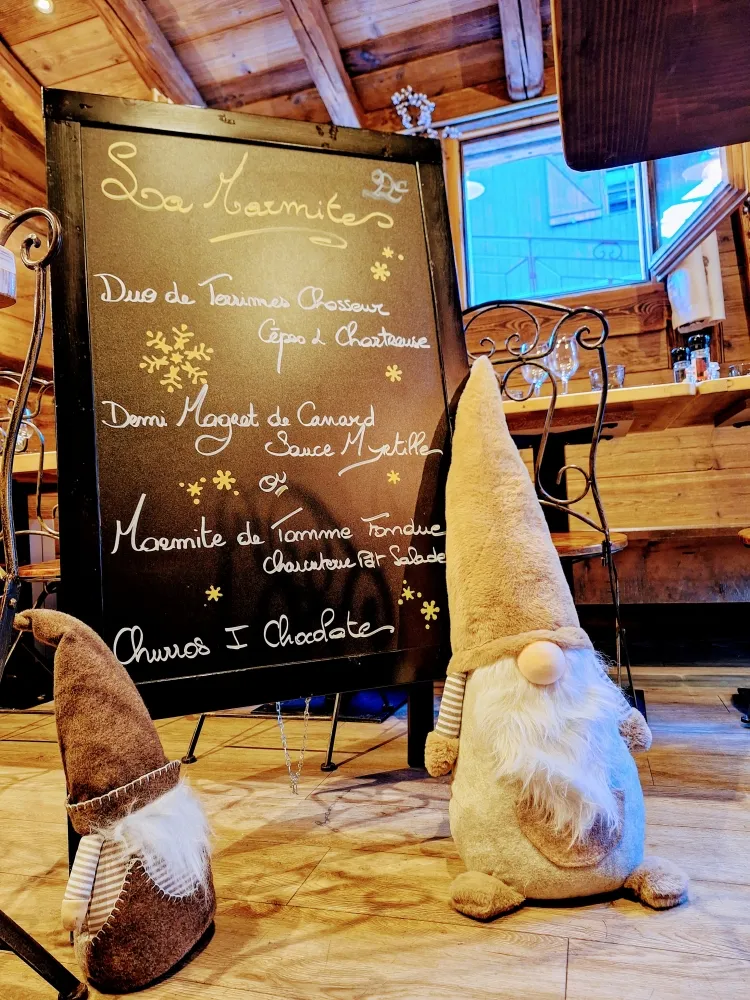 La Marmite
22€
Duo de Terrines Chasseur
Cèpes & Chartreuse
Demi Magret de Canard
Sauce Myrtille
ou
Marmite de Tomme Fondue
Charcuterie PdT Salade
Churros I Chocolate